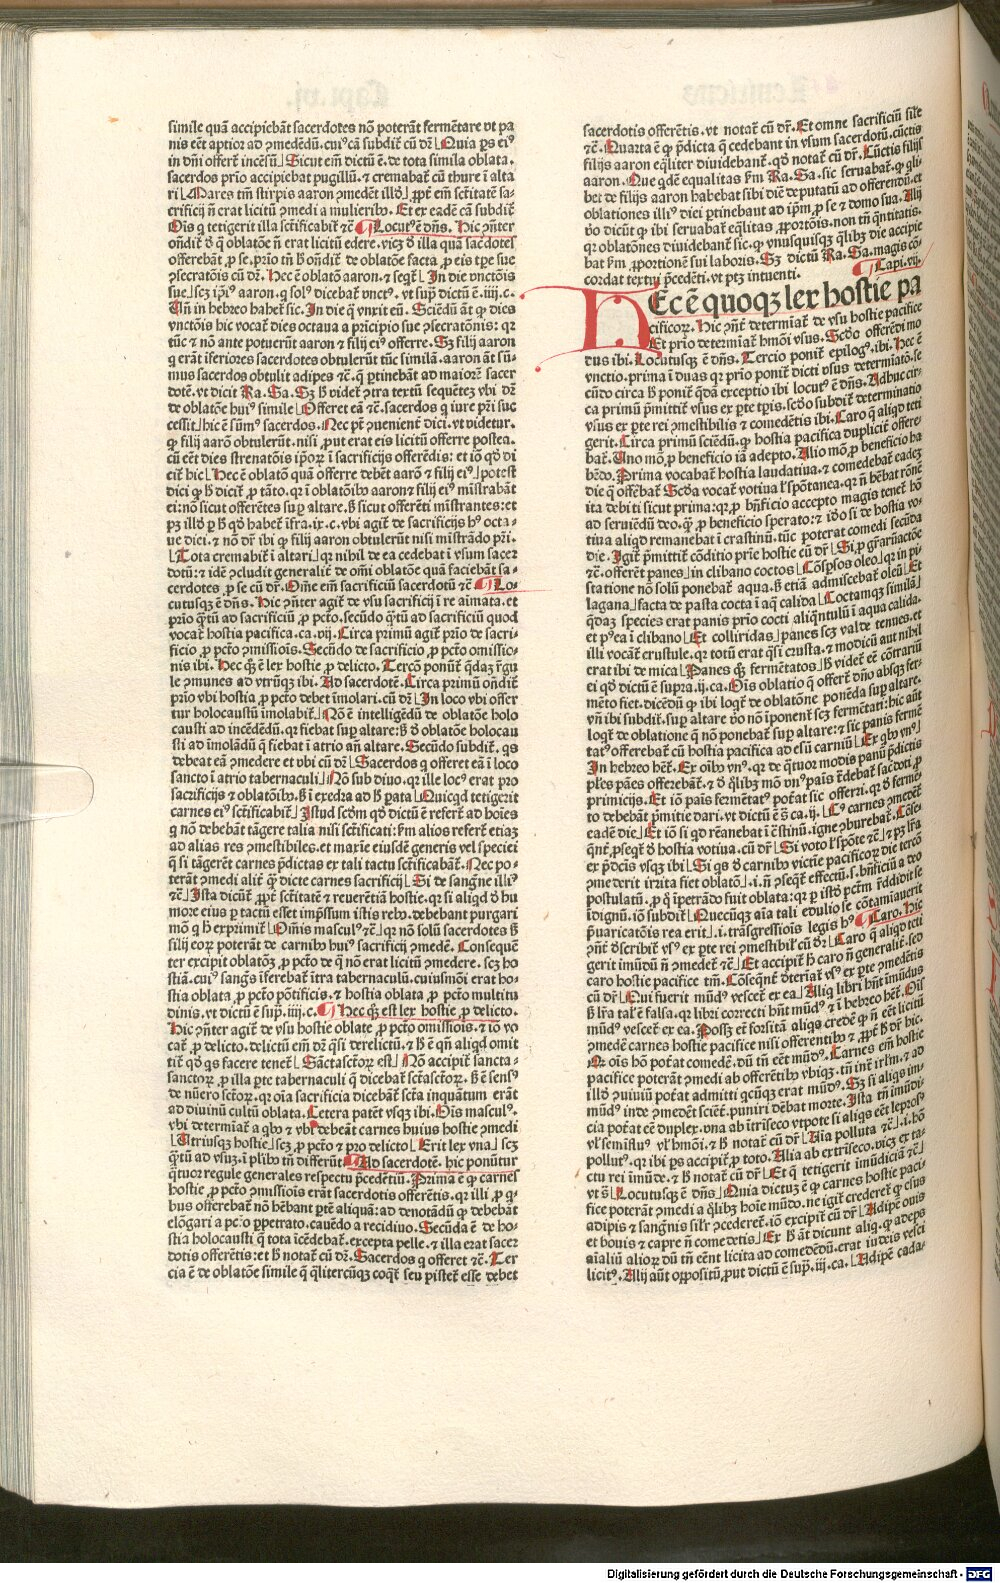 simile quā accipiebāt sacerdotes nō poterāt fermētare vt pa
nis eēt aptior ad ꝯmedēdū. cuiꝰ cā subdit̄ cū dr̄ Quia ps eiꝰ
in dñi offert̄ incēsū Sicut em̄ dictū ē. de tota simila oblata.
sacerdos prīo accipiebat pugillū. ⁊ cremabat̄ cū thure ī alta
ri Mares tm̄ stirpis aaron ꝯmedēt illō ꝓpt̄ em̄ sctītatē sa-
crificij n̄ erat licitū ꝯmedi a mulieribꝰ. Et ex eadē cā subdit̄
Oīs q̄ tetigerit illa sctīficabit̄ ⁊c̄ Locutꝰ ē dñs. Hic ꝯn̄ter
on̄dit̄ ꝙ q̄ oblatōe n̄ erat licitū edere. vicꝫ ꝺ illa quā sacdotes
offerebāt ꝓ se. prīo tn̄ h̄ on̄dit̄ de oblatōe facta ꝓ eis tꝑe sue
ꝯsecratōis cū dr̄. Hec ē oblatō aaron. ⁊ seqt̄ In die vnctōis
sue scꝫ ip̄iꝰ aaron. q̄ solꝰ dicebat̄ vnctꝰ. vt supͣ dictū ē. iiij. c.
Vn̄ in hebreo habet̄ sic. In die q̄ vnxit eū. Sciēdū āt ꝙ dies
vnctōis hic vocat̄ dies octaua a prīcipio sue ꝯsecratōnis: qꝛ
tūc ⁊ nō ante potuerūt aaron ⁊ filij eiꝰ offerre. Sꝫ filij aaron
q̄ erāt īferiores sacerdotes obtulerūt tūc similā. aaron āt sū-
mus sacerdos obtulit adipes ⁊c̄. q̄ ꝑtinebāt ad maiorē sacer
dotē. vt dicit Ra. Sa. Sꝫ h̄ videt̄ ꝯtra textū sequētez vbi dr̄
de oblatōe huiꝰ simile Offeret eā ⁊c̄. sacerdos q̄ iure prī suc
cessit hic ē sūmꝰ sacerdos. Nec pt̄ ꝯuenient̄ dici. vt videtur.
ꝙ filij aarō obtulerūt. nisi ꝓut erat eis licitū offerre postea.
cū eēt dies strenatōis ip̄oꝝ ī sacrificijs offerēdis: et iō qd̄ di
cit̄ hic Hec ē oblatō quā offerre debēt aarō ⁊ filij eiꝰ potest
dici ꝙ h̄ dicit̄ ꝓ tāto. qꝛ ī oblatōibꝰ aaron ⁊ filij eiꝰ mīstrabāt
ei: nō sicut offerētes suꝑ altare. sꝫ sicut offerēti mīstrantes: et
pꝫ illd̄ ꝑ h̄ qd̄ habet̄ īfra. ix. c. vbi agit̄ de sacrificijs hꝰ octa-
ue diei. ⁊ nō dr̄ ibi ꝙ filij aaron obtulerūt nisi mīstrādo prī.
Tota cremabit̄ ī altari qꝛ nihil de ea cedebat ī vsum sacer
dotū: ⁊ idē ꝯcludit generalit̄ de om̄i oblatōe quā faciebāt sa-
cerdotes ꝓ se cū dr̄. Om̄e em̄ sacrificiū sacerdotū ⁊c̄ Lo-
cutusqꝫ ē dñs. Hic ꝯn̄ter agit̄ de vsu sacrificij ī re aīmata. et
prīo q̄tū ad sacrificiū ꝓ pct̄o. secūdo q̄tū ad sacrificiū quod
vocat̄ hostia pacifica. ca. vij. Circa primū agit̄ prīo de sacri-
ficio ꝓ pct̄o ꝯmissiōis. Secūdo de sacrificio ꝓ pct̄o omissio-
nis ibi. Hec q̄ꝫ ē lex hostie ꝓ delicto. Tercō ponūt̄ q̄dā r̄gu
le ꝯmunes ad vtrūqꝫ ibi. Ad sacerdotē. Circa primū on̄dit̄
prīo vbi hostia ꝓ pct̄o debet īmolari. cū dr̄ In loco vbi offer
tur holocaustū īmolabit̄ Nō ē intelligēdū de oblatōe holo
causti ad incēdēdū. qꝛ fiebat suꝑ altare: sꝫ ꝺ oblatōe holocau
sti ad imolādū q̄ fiebat ī atrio an̄ altare. Secūdo subdit̄. qs
debeat eā ꝯmedere et vbi cū dr̄ Sacerdos q̄ offeret eā ī loco
sancto ī atrio tabernaculi Nō sub diuo. qꝛ ille locꝰ erat ꝓ
sacrificijs ⁊ oblatōibꝰ. sꝫ ī exedra ad h̄ ꝑata Quicqd tetigerit
carnes eiꝰ sctīficabit̄ Istud scd̄m qd̄ dictū ē refert̄ ad boies
q̄ nō debebāt tāgere talia nisi sctīficati: km̄ alios refert̄ etiaꝫ
ad alias res ꝯmestibiles. et maxīe eiusdē generis vel speciei
q̄ si tāgerēt carnes p̄dictas ex tali tactu sctīficabāt̄. Nec po-
terāt ꝯmedi alit̄ q̄ dicte carnes sacrificij Si de sangne illiꝰ
⁊c̄ Ista dicūt̄ ꝓpt̄ sctītatē ⁊ reuerētiā hostie. qꝛ si aliqd ꝺ hu
more eius ꝑ tactū esset imp̄ssum istis rebꝰ. debebant purgari
mō q̄ h̄ exprimit̄ Om̄is masculꝰ ⁊c̄ qꝛ nō solū sacerdotes sꝫ
filij eoꝝ poterāt de carnibꝰ huiꝰ sacrificij ꝯmedē. Consequē
ter excipit oblatōeꝫ ꝓ pct̄o de q̄ nō erat licitū ꝯmedere. scꝫ ho
stiā. cuiꝰ sangs īferebat̄ ītra tabernaculū. cuiusmōi erat ho-
stia oblata ꝓ pct̄o pōtificis. ⁊ hostia oblata ꝓ pct̄o multitu
dinis. vt dictū ē supͣ. iiij. c. Hec q̄ꝫ est lex hostie ꝓ delicto.
Hic ꝯn̄ter agit̄ de vsu hostie oblate ꝓ pct̄o omissiōis. ⁊ iō vo
cat̄ ꝓ delicto. delictū em̄ dr̄ q̄si derelictū. ⁊ h̄ ē qn̄ aliqd omit
tit̄ qd̄ qs facere tenet̄ Sāctasctōꝝ est Nō accipit̄ sancta-
sanctoꝝ ꝓ illa ꝑte tabernaculi q̄ dicebat̄ sctāsctōꝝ. sꝫ ē sensꝰ
de nūero sctōꝝ. qꝛ oīa sacrificia dicebāt̄ sctā inquātum erāt
ad diuinū cultū oblata. Cetera patēt vsqꝫ ibi. Oīs masculꝰ.
vbi determiāt̄ a qbꝰ ⁊ vbi debeāt carnes huius hostie ꝯmedi
Vtriusqꝫ hostie scꝫ ꝓ pct̄o ⁊ pro delicto Erit lex vna scꝫ
q̄tū ad vsuꝫ. ī pl̄ibꝰ tn̄ differūt Ad sacerdotē. hic ponūtur
q̄tuor regule generales respectu p̄cedētiū. Prima ē ꝙ carnes
hostie ꝓ pct̄o ꝯmissiōis erāt sacerdotis offerētis. qꝛ illi ꝓ q̄-
bus offerebāt̄ nō hēbant ꝑtē aliquā: ad denotādū ꝙ debebāt
elōgari a pct̄o ꝑpetrato. cauēdo a recidiuo. Secūda ē de ho-
stia holocausti q̄ tota īcēdebat̄. excepta pelle. ⁊ illa erat sacer
dotis offerētis: et h̄ notat̄ cū dr̄. Sacerdos q̄ offeret ⁊c̄. Ter
cia ē de oblatōe simile q̄ q̄litercūqꝫ coqt̄ seu pistet̄ esse debet
sacerdotis offerētis. vt notat̄ cū dr̄. Et omne sacrificiū sile
⁊c̄. Quarta ē ꝙ p̄dicta q̄ cedebant in vsum sacerdotū. cūctis
filijs aaron eq̄liter diuidebant̄. qd̄ notat̄ cū dr̄. Cūctis filijs
aaron. Que qdē equalitas km̄ Ra. Sa. sic seruabat̄. ꝙ qli
bet de filijs aaron habebat sibi diē deputatū ad offerendū. et
oblationes illiꝰ diei ꝑtinebant ad ip̄m ꝓ se ⁊ domo sua. Alij
vō dicūt ꝙ ibi seruabat̄ eq̄litas ꝓportōis. non tn̄ q̄ntitatis.
qꝛ oblatōnes diuidebant̄ sic. ꝙ vnusquisqꝫ q̄libꝫ die accipie
bat km̄ ꝓportionē sui laboris. Sꝫ dictū Ra. Sa. magis cō-
cordat textui p̄cedēti. vt ptꝫ intuenti. Capi. vij.
HEc ē quoqꝫ lex hostie pa
cificoꝝ. Hic ꝯn̄t̄ determiat̄ de vsu hostie pacifice
Et prīo determiat̄ hmōi vsus. Scd̄o offerēdi mo
dus ibi. Locutusqꝫ ē dñs. Tercio ponit̄ epilogꝰ. ibi. Hec ē
vnctio. prima ī duas qꝛ prīo ponit̄ dicti vsus determiatō. se
cūdo circa h̄ ponit̄ q̄dā exceptio ibi locutꝰ ē dñs. Adhuc cir-
ca primū p̄mittit̄ vsus ex ꝑte tꝑis. scd̄o subdit̄ determinatio
vsus ex ꝑte rei ꝯmestibilis ⁊ comedētis ibi. Caro q̄ aliqd teti
gerit. Circa primū sciēdū. ꝙ hostia pacifica duplicit̄ offere
bat̄. Uno mō ꝓ beneficio iā adepto. Alio mō ꝓ beneficio ha
bēdo. Prima vocabat̄ hostia laudatiua. ⁊ comedebat̄ eadeꝫ
die q̄ offēbat̄ Scd̄a vocat̄ votiua l̄ spōtanea. qꝛ n̄ hēbat rōnē
ita debiti sicut prima: qꝛ ꝓ bn̄ficio accepto magis tenet̄ hō
ad seruiēdū deo. q̄ ꝓ beneficio sperato: ⁊ iō si de hostia vo-
tiua aliqd remanebat ī crastinū. tūc poterat comedi secūda
die. Igit̄ p̄mittit̄ cōditio prīe hostie cū dr̄ Si ꝓ gr̄arūactōe
⁊c̄. offerēt panes in clibano coctos Cōsꝑsos oleo qꝛ in pi-
statione nō solū ponebat̄ aqua. sꝫ etiā admiscebat̄ oleū Et
lagana facta de pasta cocta ī aq̄ calida Coctamqꝫ similā
q̄daꝫ species erat panis prīo cocti aliq̄ntulū ī aqua calida.
et pꝰea ī clibano Et colliridas panes scꝫ valde tenues. et
illi vocāt̄ crustule. qꝛ totū erat q̄si crusta. ⁊ modicū aut nihil
erat ibi de mica Panes q̄ꝫ fermētatos h̄ videt̄ eē cōtrariū
ei qd̄ dictū ē supra. ij. ca. Oīs oblatio q̄ offert̄ dño absqꝫ fer-
mēto fiet. dicēdū ꝙ ibi loqt̄ de oblatōne ponēda suꝑ altare.
vn̄ ibi subdit̄. suꝑ altare vō nō īponent̄ scꝫ fermētati: hic aūt̄
loqt̄ de oblatione q̄ nō ponebat̄ suꝑ altare: ⁊ sic panis fermē
tatꝰ offerebat̄ cū hostia pacifica ad esū carniū Ex qbꝰ vnꝰ
In hebreo hēt̄. Ex oībꝰ vnꝰ. qꝛ de q̄tuor modis panū p̄dictis
pl̄es pāes offerebāt̄. ⁊ ꝺ q̄libꝫ mō vnꝰ pais r̄debat̄ sacdoti ꝓ
primicijs. Et iō pais fermētatꝰ pot̄at sic offerri. qꝛ ꝺ fermē-
to debebāt p̄mitie dari. vt dictū ē s̄. ca. ij. Cꝰ carnes ꝯmedēt̄
eadē die Et iō si qd rēanebat ī c̄stinū. igne ꝯburebat̄. Cōse-
qn̄t̄ ꝓseqt̄ ꝺ hostia votiua. cū dr̄ Si voto l̄ spōte ⁊c̄ ⁊ pꝫ lr̄a
ex p̄dcīs vsqꝫ ibi Si qs ꝺ carnibꝰ victie pacificoꝝ die tercō
ꝯmederit irrita fiet oblatō .i. n̄ ꝯseqt̄ effectū. s. bn̄ficiū a deo
postulatū. ꝓ q̄ īpetrādo fuit oblata: qꝛ ꝑ istd̄ pctm̄ r̄ddidit se
īdignū. iō subdit̄ Quecūqꝫ aīa tali edulio se cōtamiauerit
p̄uaricatōis rea erit .i. trāsgressiōis legis hꝰ Caro. Hic
ꝯn̄t̄ dscribit̄ vsꝰ ex ꝑte rei ꝯmestibil̄ cū dr̄ Caro q̄ aliqd teti
gerit imūdū n̄ ꝯmedet̄ ⁊c̄ Et accipit̄ h̄ caro n̄ generalit̄. sꝫ ꝺ
caro hostie pacifice tm̄. Cōseqn̄t̄ dēriat̄ vsꝰ ex ꝑte ꝯmedētis
cū dr̄ Qui fuerit mūdꝰ vescet̄ ex ea Aliq libri hn̄t īmūdus
sꝫ lr̄a tal̄ ē falsa. qꝛ libri correcti hn̄t mūdꝰ ⁊ ī hebreo hēt̄. Oīs
mūdꝰ vescet̄ ex ea. Possꝫ em̄ forsitā aliqs credē ꝙ n̄ eēt licitū
ꝯmedē carnes hostie pacifice nisi offerentibꝰ ⁊ ꝓpt̄ h̄ dr̄ hic.
ꝙ oīs hō pot̄at comedē. dū tn̄ eēt mūdꝰ. Carnes em̄ hostie
pacifice poterāt ꝯmedi ab offerētibꝰ vbiqꝫ. tn̄ int̄ irl̄m. ⁊ ad
illd̄ ꝯuiuiū pot̄at admitti qcūqꝫ erat mūdꝰ. Sꝫ si aliqs im-
mūdꝰ inde ꝯmedēt sciēt̄. puniri dēbat morte. Ista tn̄ īmūdi
cia pot̄at eē duplex. vna ab ītriseco vtpote si aliqs eēt leprosꝰ
vl̄ semīfluꝰ vl̄ hmōi. ⁊ h̄ notat̄ cū dr̄ Aīa polluta ⁊c̄ .i. hō
pollutꝰ. qꝛ ibi ps accipit̄ ꝓ toto. Alia ab extrīseco. vicꝫ ex ta-
ctu rei imūde. ⁊ h̄ notat̄ cū dr̄ Et q̄ tetigerit imūdiciā ⁊c̄
vt s̄ Locutusqꝫ ē dñs Quia dictuꝫ ē ꝙ carnes hostie paci-
fice poterāt ꝯmedi a q̄libꝫ hoīe mūdo. ne igit̄ crederet̄ ꝙ esus
adipis ⁊ sangnis sil̄r ꝯcederet̄. iō excipit̄ cū dr̄ Adipē ouis
et bouis ⁊ capre n̄ comedetis Ex h̄ āt dicunt aliq. ꝙ adeps
aīaliū alioꝝ dū tn̄ eēnt licita ad comedēdū. erat iudeis vesci
licitꝰ. Alij aūt oppositū. put dictū ē supͣ. iij. ca. Adipē cada-
Digitalisierung gefördert durch die Deutsche Forschungsgemeinschaft - DFG